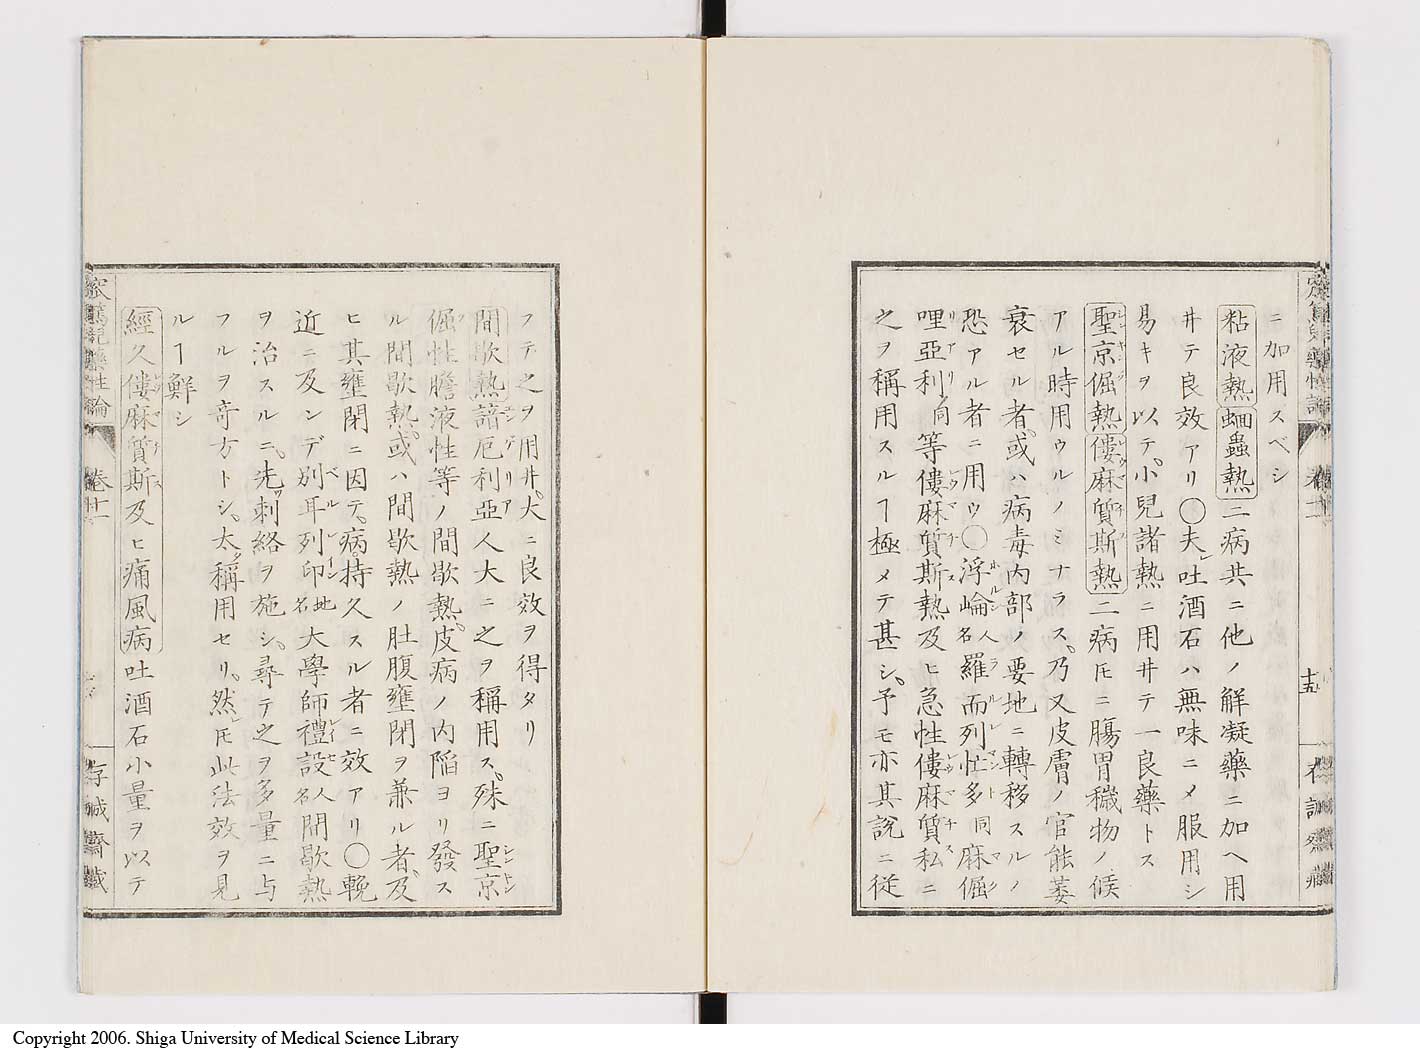 ニ加用スベシ
粘液熱 蛔蟲熱 二病共ニ他ノ解凝藥ニ加ヘ用
井テ良效アリ〇夫レ吐酒石ハ無味ニメ服用シ
易キヲ以テ小兒諸熱ニ用井テ一良藥トス
聖京倔熱 僂麻質斯熱 二病𪜈ニ膓胃穢物ノ候
アル時用ウルノミナラス乃又皮膚ノ官能萎
衰セル者或ハ病毒内部ノ要地ニ轉移スルノ
恐アル者ニ用ウ〇浮崘人名羅而列忙多同麻倔
哩亞利同等僂麻質斯熱及ヒ急性僂麻質私ニ
之ヲ稱用スルヿ極メテ甚シ予モ亦其説ニ従
フテ之ヲ用井大ニ良效ヲ得タリ
間歇熱 諳厄利亞人大ニ之ヲ稱用ス殊ニ聖京
倔性膽液性等ノ間歇熱皮病ノ内陥ヨリ發ス
ル間歇熱或ハ間歇熱ノ肚腹壅閉ヲ兼ル者及
ヒ其壅閉ニ因テ病持久スル者ニ效アリ〇輓
近ニ及ンデ別耳列印地名大學師禮設人名間歇熱
ヲ治スルニ先ツ刺絡ヲ施シ尋テ之ヲ多量ニ与
フルヲ奇方トシ太タ稱用セリ然レ𪜈此法效ヲ見
ルヿ鮮シ
經久僂麻質斯及ヒ痛風病 吐酒石小量ヲ以テ
卷十二
十五
存誠齋藏
Copyright 2006. Shiga University of Medical Science Library